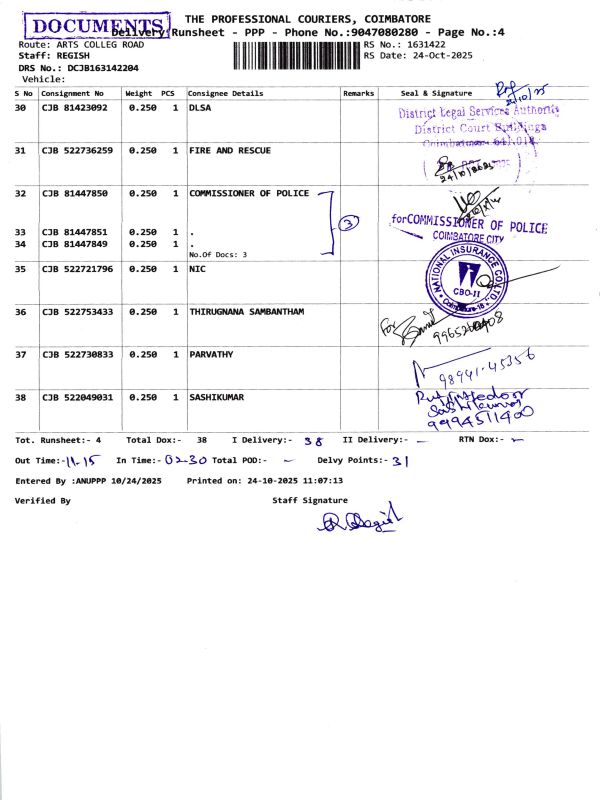 DOCUMENTS
THE PROFESSIONAL COURIERS, COIMBATORE
Delivery Runsheet - PPP - Phone No.:9047080280 - Page No.:4
Route: ARTS COLLEG ROAD
RS No.: 1631422
Staff: REGISH
RS Date: 24-Oct-2025
DRS No.: DCJB163142204
Vehicle:
S No Consignment No Weight PCS Consignee Details Remarks Seal & Signature
30 CJB 81423092 0.250 1 DLSA
District Legal Services Authority
District Court Buildings
Coimbatore - 641 018
31 CJB 522736259 0.250 1 FIRE AND RESCUE
24/10/2025
32 CJB 81447850 0.250 1 COMMISSIONER OF POLICE
3
for COMMISSIONER OF POLICE
COIMBATORE CITY
33 CJB 81447851 0.250 1 .
34 CJB 81447849 0.250 1 .
No.Of Docs: 3
35 CJB 522721796 0.250 1 NIC
NATIONAL INSURANCE CO. LTD
CBO-II
Coimbatore-18
36 CJB 522753433 0.250 1 THIRUGNANA SAMBANTHAM
For
37 CJB 522730833 0.250 1 PARVATHY
98941-45356
38 CJB 522049031 0.250 1 SASHIKUMAR
Sashikumar
9994511400
Tot. Runsheet:- 4 Total Dox:- 38 I Delivery:- 38 II Delivery:- - RTN Dox:- -
Out Time:- 11-15 In Time:- 02-30 Total POD:- - Delvy Points:- 31
Entered By :ANUPPP 10/24/2025 Printed on: 24-10-2025 11:07:13
Verified By Staff Signature